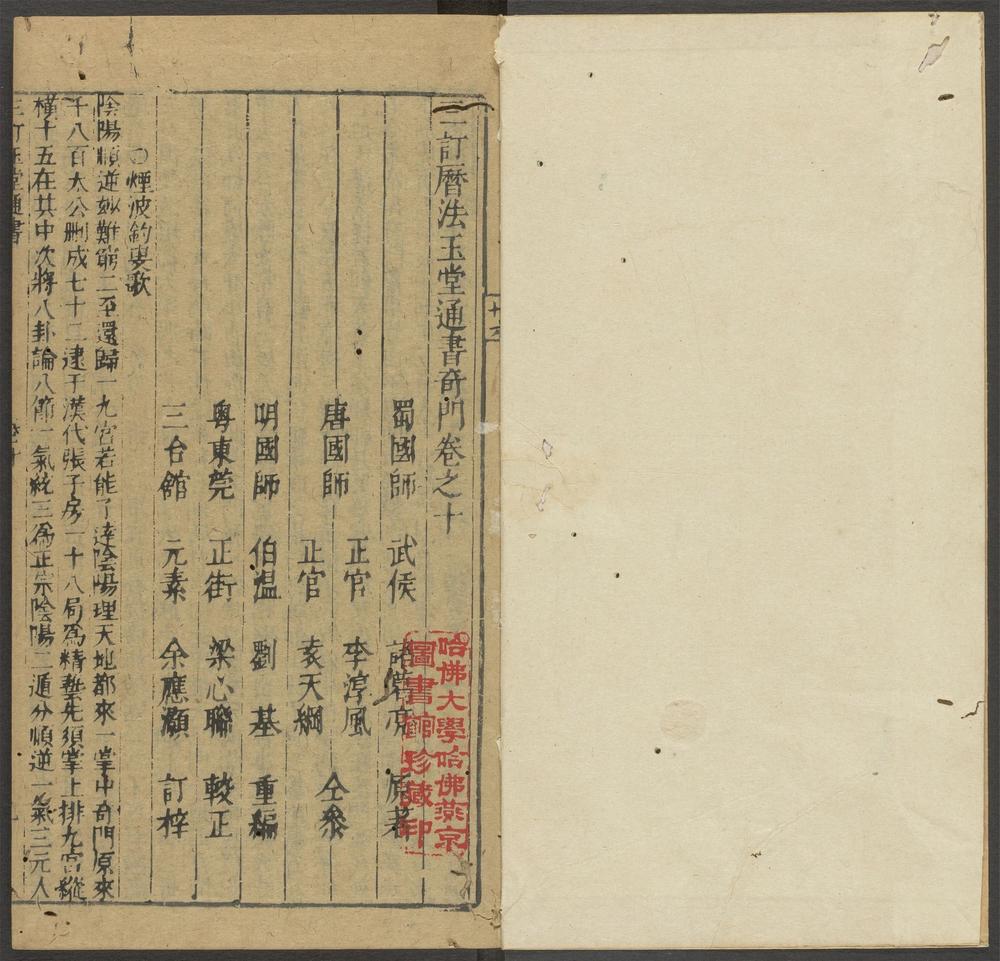 三訂曆法玉堂通書奇門卷之十
蜀國師 武侯 諸葛亮 原著
唐國師 正官 李淳風 仝叅
正官 袁天綱
明國師 伯温 劉基 重編
粤東莞 正街 梁心聯 較正
三台館 元素 余應灝 訂梓
○煙波釣叟歌
陰陽順逆妙難窮二至還歸一九宮若能了達陰陽理天地都來一掌中奇門原來
千八百太公刪成七十二逮于漢代張子房一十八局為精藝先須掌上排九宮縱
橫十五在其中次將八卦論八節一氣統三為正宗陰陽二遁分順逆一氣三元人
三訂玉堂通書 卷十
哈佛大學哈佛燕京
圖書館珍藏印